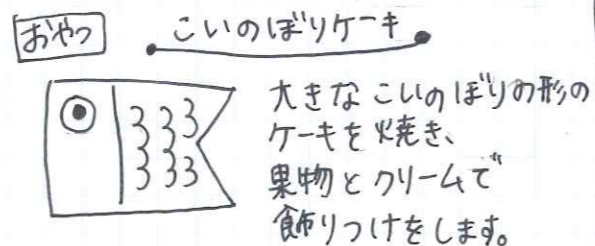 おやつ こいのぼりケーキ
大きなこいのぼりの形の
ケーキを焼き、
果物とクリームで
飾りつけをします。